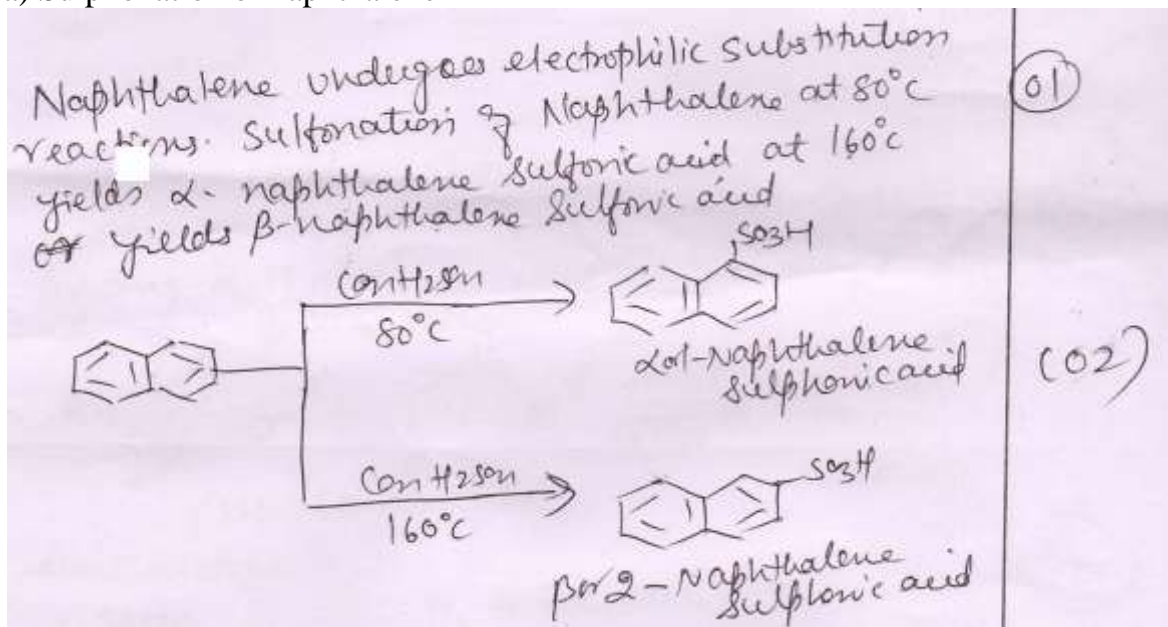 a) Sulphonation of Naphthalene
Naphthalene undergoes electrophilic substitution
reactions. Sulfonation of Naphthalene at 80°C
yields α- naphthalene sulfonic acid at 160°C
yields β-naphthalene Sulfonic acid
01
SO3H
Con H2SO4
80°C
α or 1-Naphthalene
sulphonic acid
(02)
SO3H
Con H2SO4
160°C
β or 2-Naphthalene
Sulphonic acid